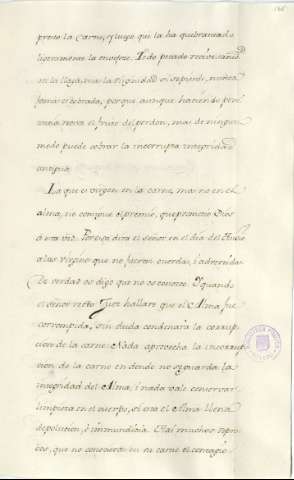 presto la carne, y luego que la ha quebrantado
ligeramente la envejece. Todo pecado recibe sanidad
en la llaga, mas la Virginidad si se pierde, nunca
jamas es cobrada, porque aunque haciendo peni-
tencia lleva el fruto del perdon, mas de ningun
modo puede cobrar la incorrupta integridad
antigua.
La que es virgen en la carne, mas no en el
alma, no consigue el premio, que prometio Dios
a esta vid. Por eso dira el señor en el dia del Juicio
a las virgenes que no fueron cuerdas, i advertidas
De verdad os digo que no os conozco. Y quando
el señor recto Juez hallare que el Alma fue
corrompida, sin duda condenara la corrup-
cion de la carne. Nada aprovecha la incorrup-
cion de la carne en donde no se guarda la
integridad del Alma, i nada vale conservar
limpieza en el cuerpo, si esta el Alma llena
de polucion, è inmundicia. Hai muchos repro-
bos, que no conocieron en su carne el contagio